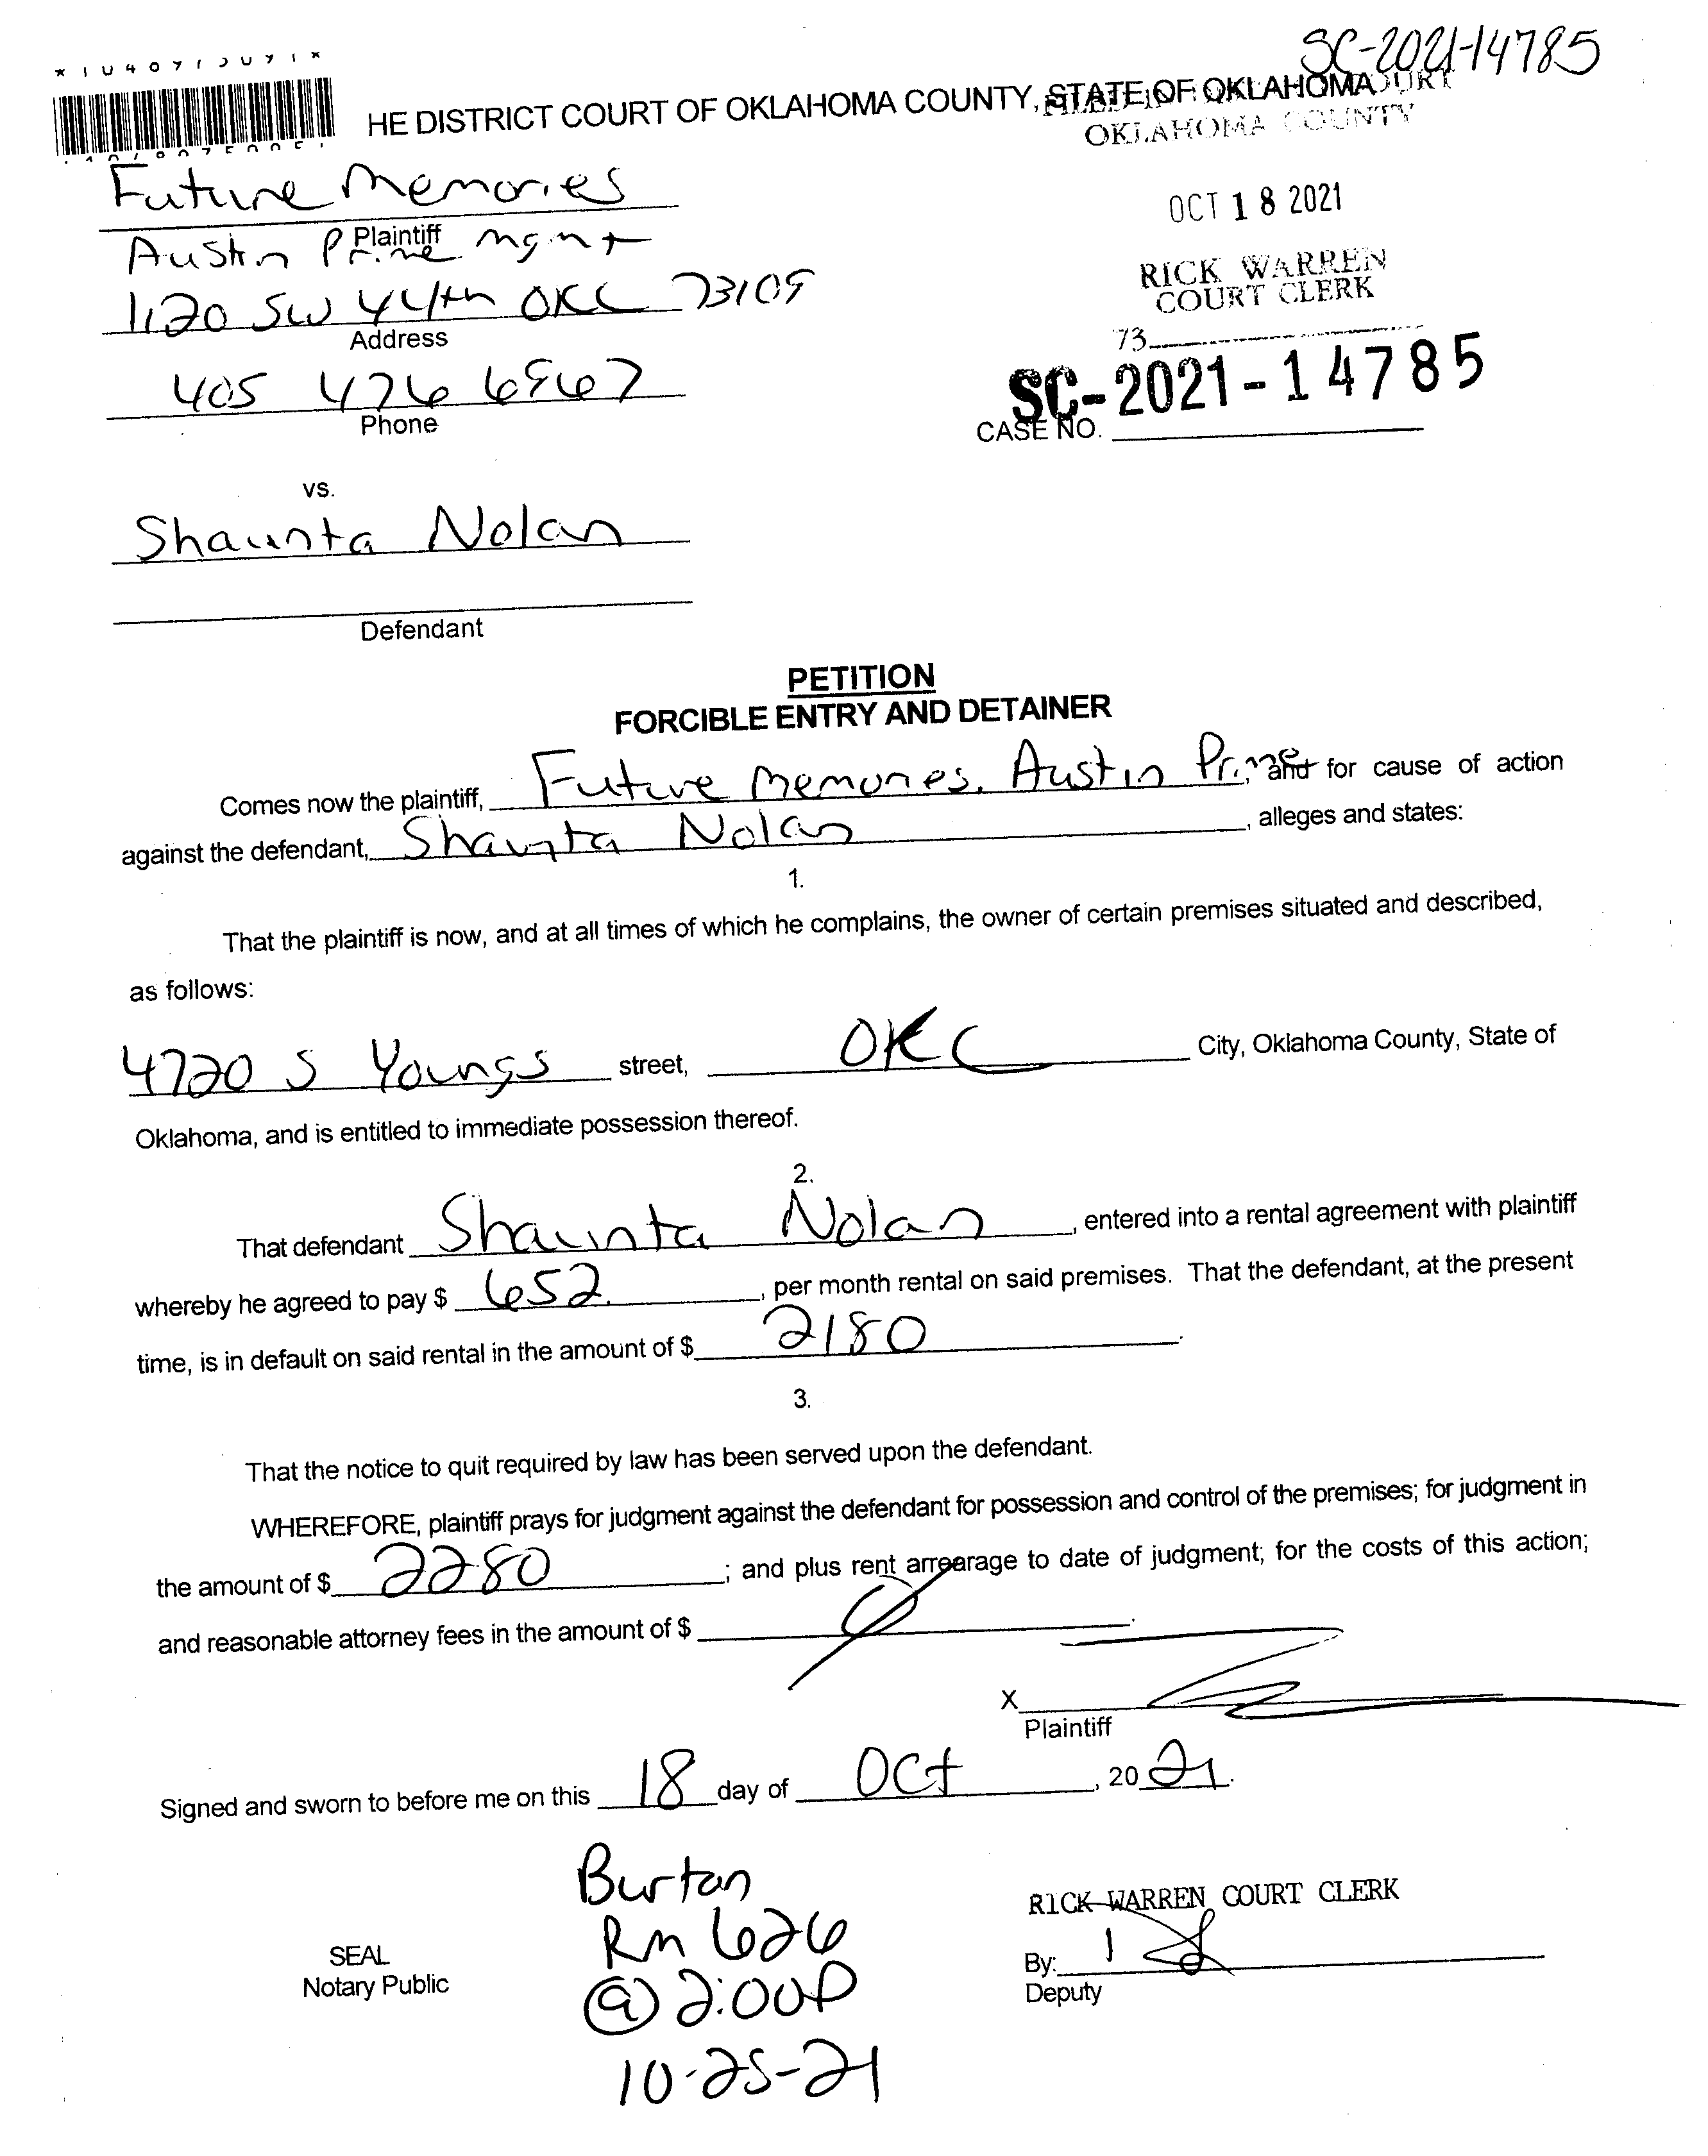 SC-2021-14785
HE DISTRICT COURT OF OKLAHOMA COUNTY, STATE OF OKLAHOMA
COURT
OKLAHOMA COUNTY
Future Memories
Plaintiff
Austin Prime Mgmt
OCT 18 2021
RICK WARREN
COURT CLERK
1120 SW 44th OKC 73109
Address
73
405 476 6967
Phone
SC-2021-14785
CASE NO.
vs.
Shaunta Nolan
Defendant
PETITION
FORCIBLE ENTRY AND DETAINER
Comes now the plaintiff, Future Memories, Austin Prime, and for cause of action
against the defendant, Shaunta Nolan, alleges and states:
1.
That the plaintiff is now, and at all times of which he complains, the owner of certain premises situated and described,
as follows:
4720 S Youngs street, OKC City, Oklahoma County, State of
Oklahoma, and is entitled to immediate possession thereof.
2.
That defendant Shaunta Nolan, entered into a rental agreement with plaintiff
whereby he agreed to pay $ 652, per month rental on said premises. That the defendant, at the present
time, is in default on said rental in the amount of $ 2180.
3.
That the notice to quit required by law has been served upon the defendant.
WHEREFORE, plaintiff prays for judgment against the defendant for possession and control of the premises; for judgment in
the amount of $ 2280; and plus rent arrearage to date of judgment; for the costs of this action;
and reasonable attorney fees in the amount of $ .
X
Plaintiff
Signed and sworn to before me on this 18 day of Oct, 2021.
Burton
Rm 626
@ 2:00P
10-25-21
SEAL
Notary Public
RICK WARREN COURT CLERK
By:
Deputy